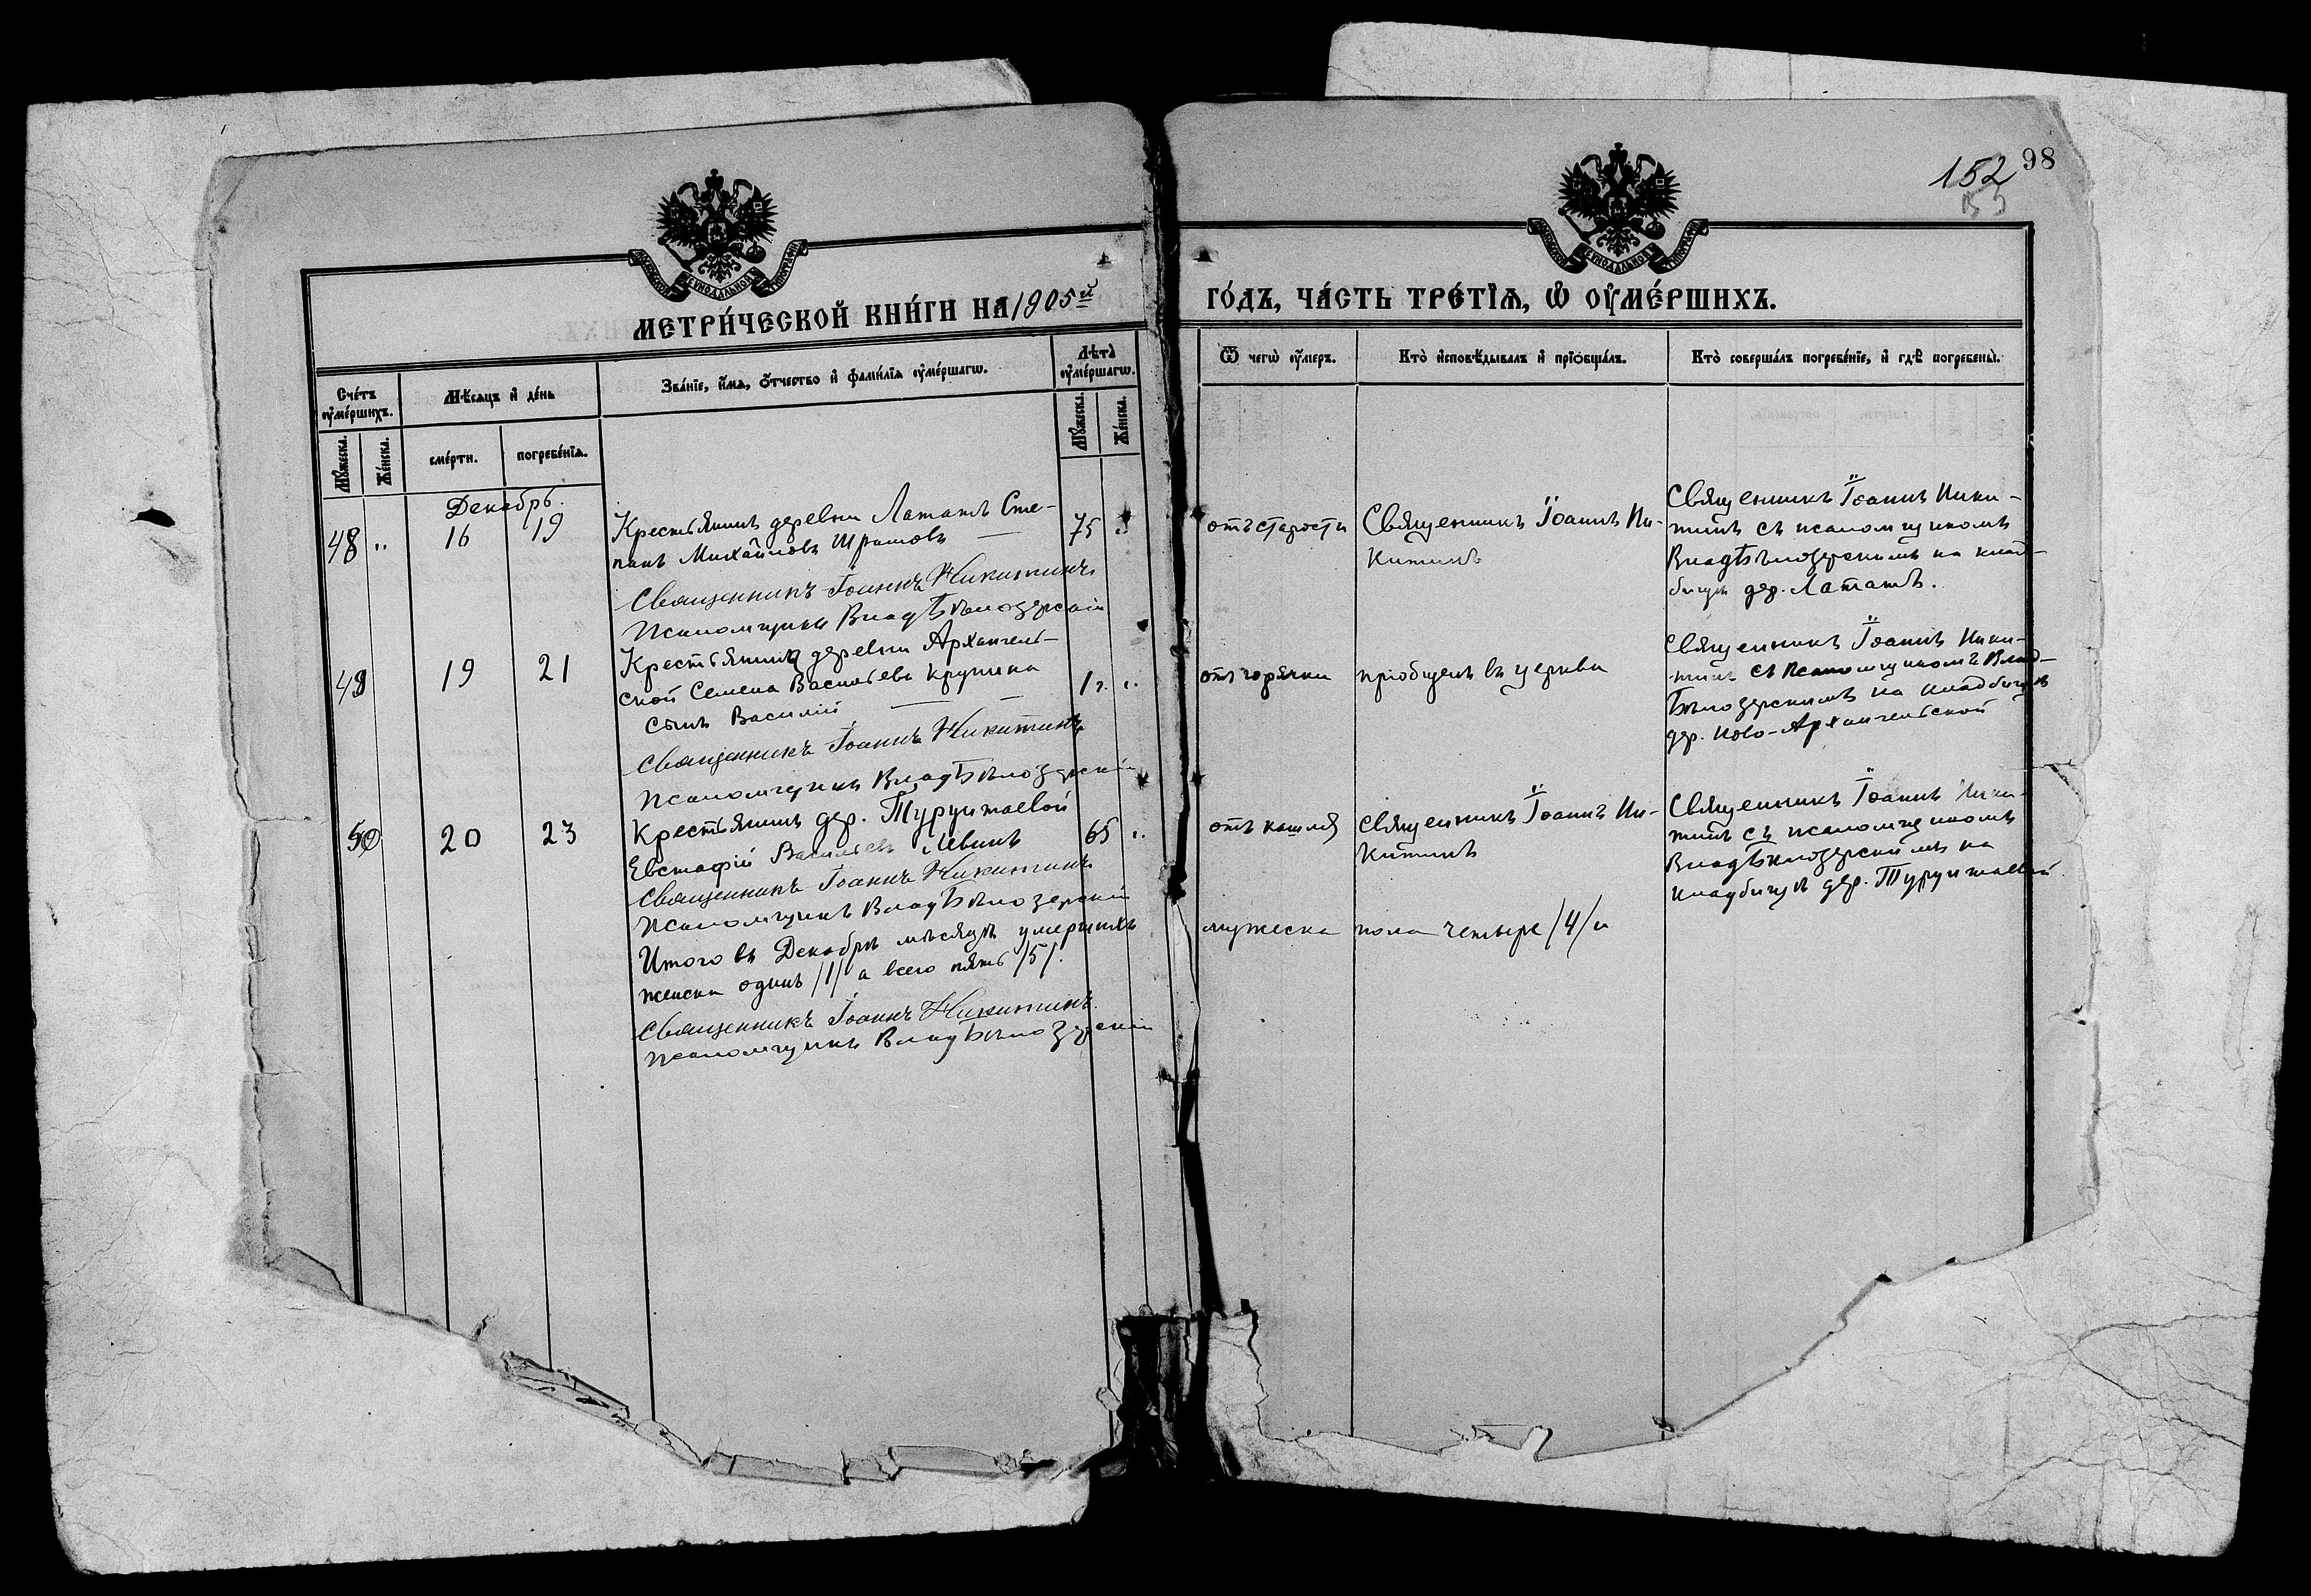 152 98
МЕТРИ́ЧЕСКОЙ КНИ́ГИ НА 1905й
ГО́ДЪ, ЧА́СТЬ ТРЕ́ТІѦ, Ѡ҆ ОУ҆МЕ́РШИХЪ.
Сче́тъ оу҆ме́ршихъ.
Мѣ́сяцъ и҆ де́нь
Зва́нїе, и҆́мѧ, ѻ҆́тчество и҆ фами́лїѧ оу҆ме́ршагѡ.
Лѣ́та̀ оу҆ме́ршагѡ.
Мꙋ́жеска.
Же́нска.
сме́рти.
погребе́нїѧ.
Мꙋ́жеска.
Же́нска.
Ѿ чегѡ̀ оу҆́меръ.
Кто̀ и҆сповѣ́дывалъ и҆ прїѻбща́лъ.
Кто̀ соверша́лъ погребе́нїе, и҆ гдѣ̀ погребены̀.
Декабрь.
48 " 16 19
Крестьянинъ деревни Лататъ Сте-
панъ Михайловъ
75 "
Священникъ Іоаннъ Никитинъ
Псаломщикъ Влад. Бѣлозерскій
отъ старости
Священникъ Іоаннъ Ни-
китинъ
Священникъ Іоаннъ Ники-
тинъ съ псаломщикомъ
Влад. Бѣлозерскимъ на клад-
бищѣ дер. Лататъ.
49 19 21
Крестьянина деревни Архангель-
ской Семена Васильева Крупина
сынъ Василій
1 г. "
Священникъ Іоаннъ Никитинъ
Псаломщикъ Влад. Бѣлозерскій
отъ горячки
пріобщенъ въ церкви
Священникъ Іоаннъ Ники-
тинъ съ Псаломщикомъ Влад.
Бѣлозерскимъ на кладбищѣ
дер. Ново-Архангельской
50 20 23
Крестьянинъ дер. Турунтаевой
Евстафій Васильевъ Левинъ
65 "
Священникъ Іоаннъ Никитинъ
Псаломщикъ Влад. Бѣлозерскій
отъ кашля
Священникъ Іоаннъ Ни-
китинъ
Священникъ Іоаннъ Ники-
тинъ съ псаломщикомъ
Влад. Бѣлозерскимъ на
кладбищѣ дер. Турунтаевой.
Итого въ Декабрѣ мѣсяцѣ умершихъ
мужеска пола четыре /4/ и
женска одинъ /1/ а всего пять /5/.
Священникъ Іоаннъ Никитинъ.
Псаломщикъ Влад. Бѣлозерскій